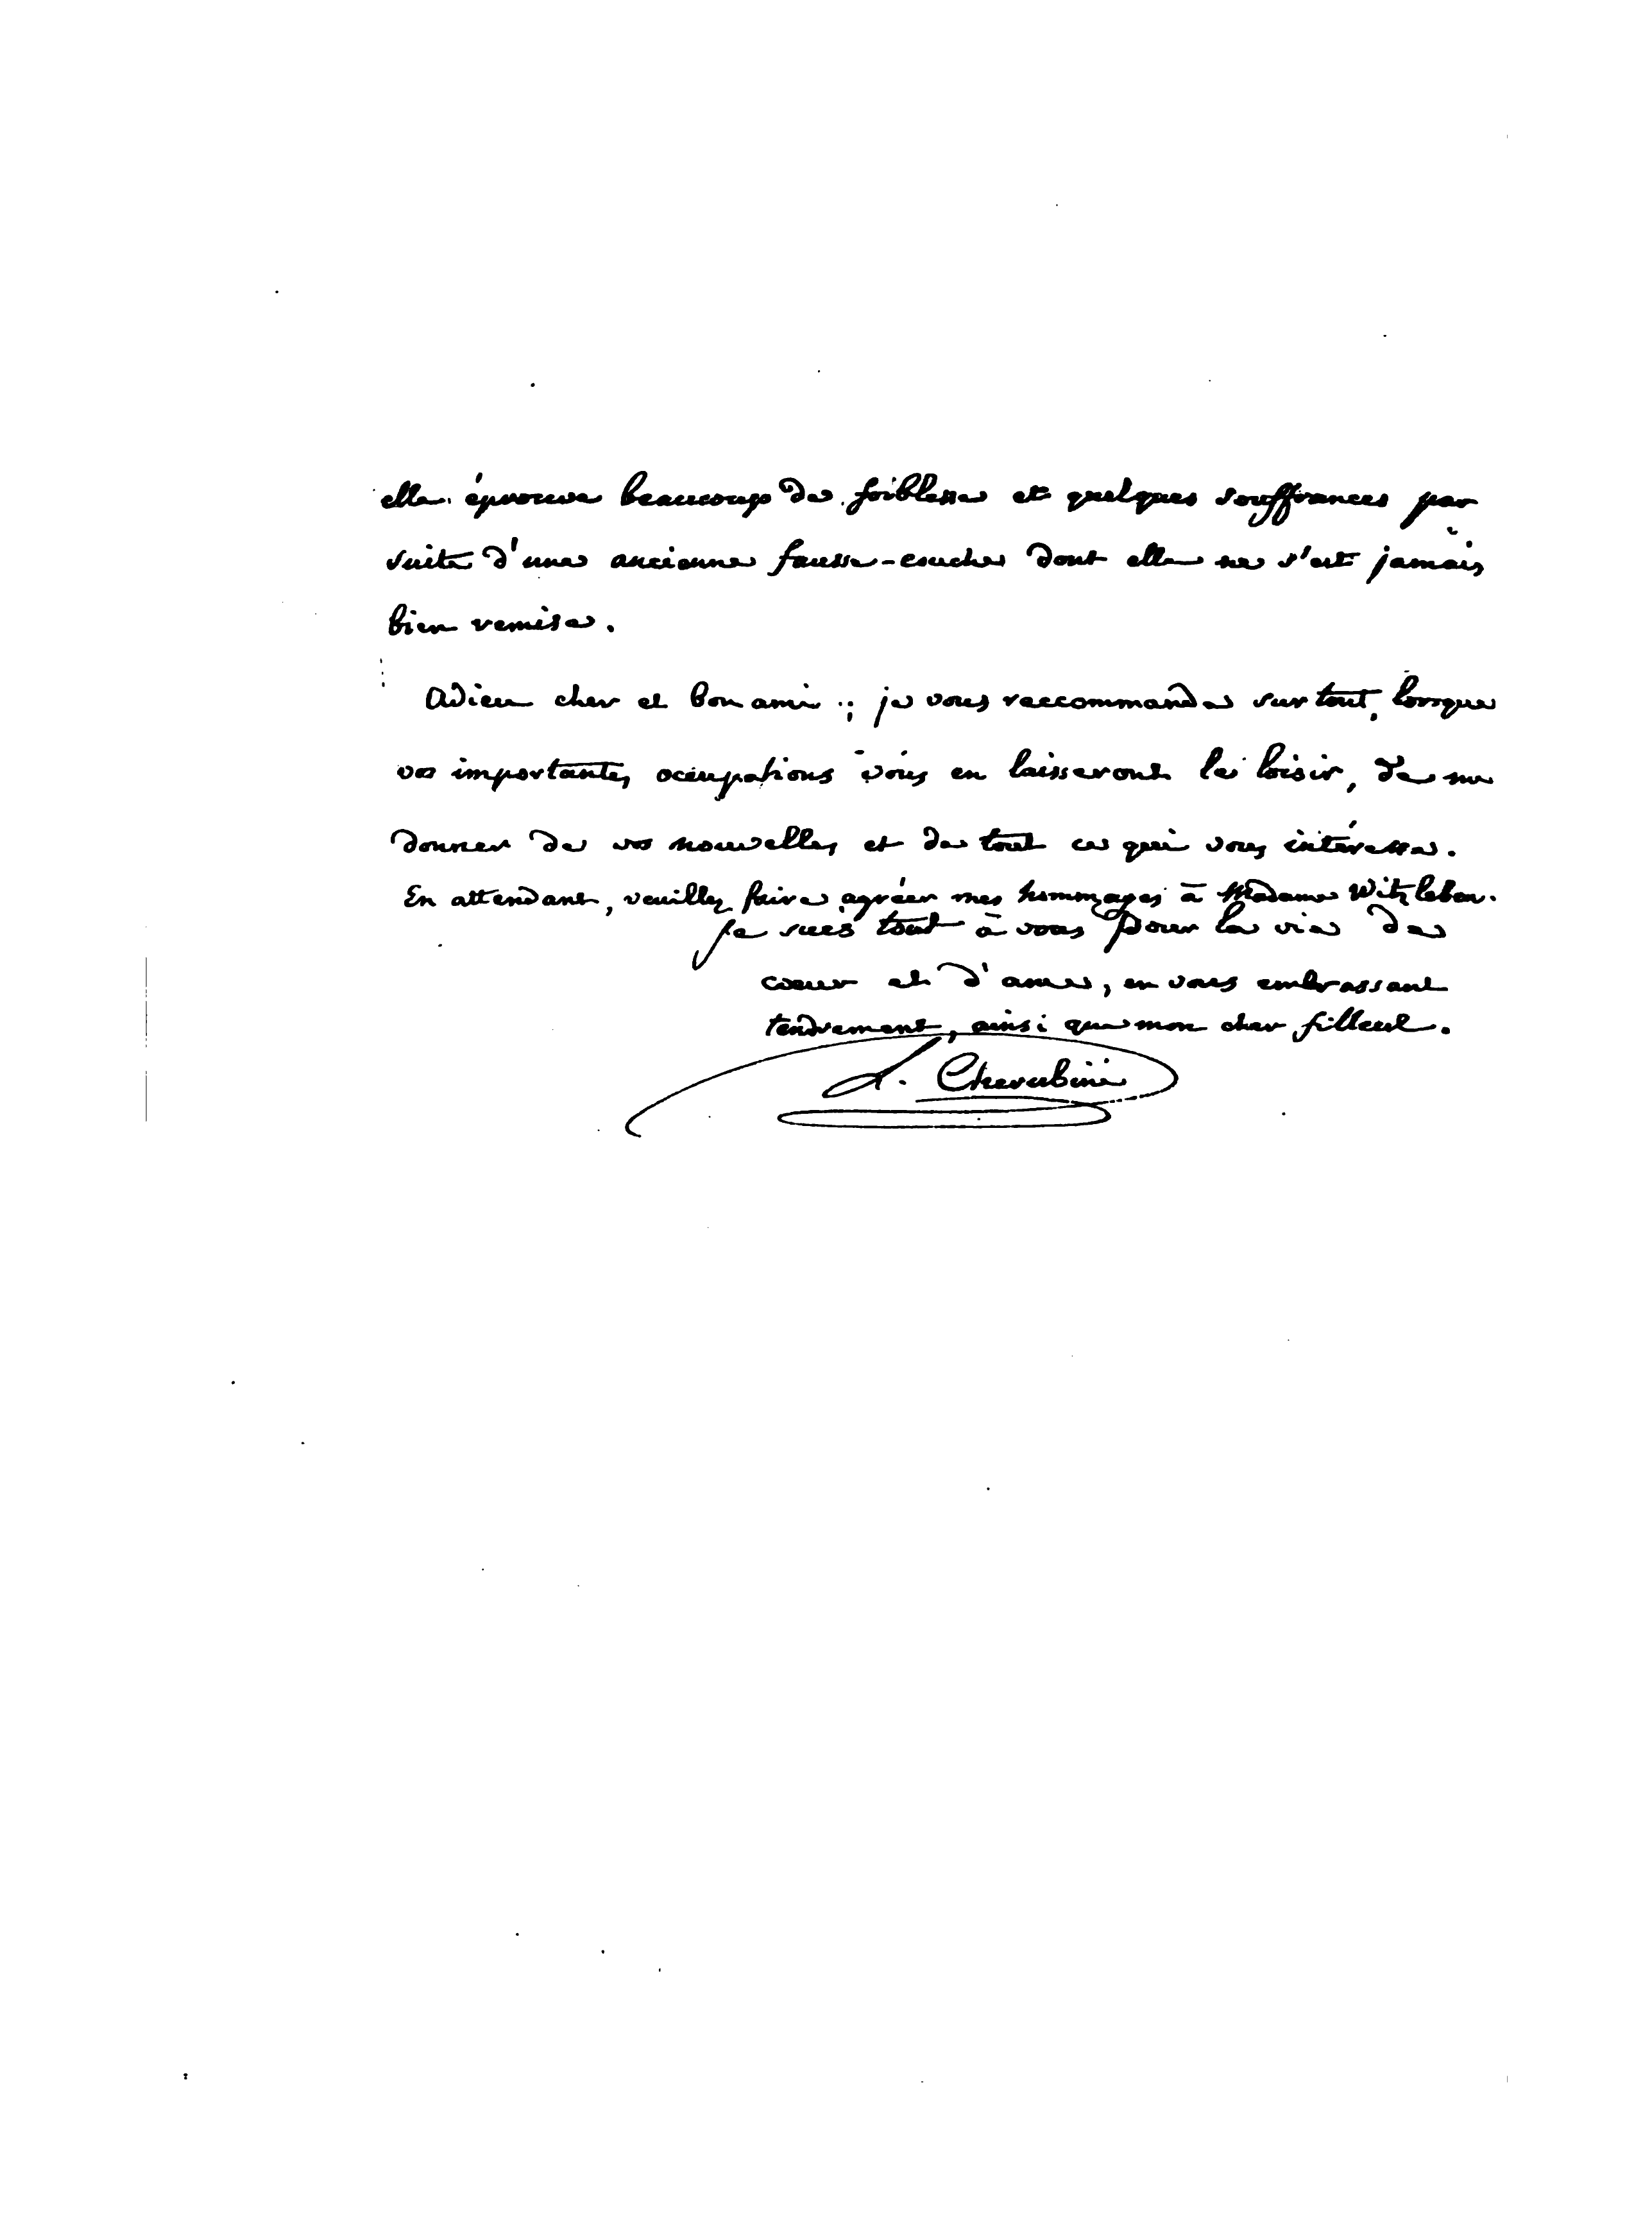 elle éprouve beaucoup de foiblesse et quelques souffrances par
suite d'une ancienne fausse-couche dont elle ne s'est jamais
bien remise.
Adieu cher et bon ami ; je vous reccommande sur tout, lorsque
vos importantes occupations vous en laisseront le loisir, de me
donner de vos nouvelles et de tout ce qui vous intéresse.
En attendant, veuillez faire agréer mes hommages à Madame Witzleben.
Je suis tout à vous pour la vie de
coeur et d'ame, en vous embrassant
tendrement, ainsi que mon cher filleul.
L. Cherubini